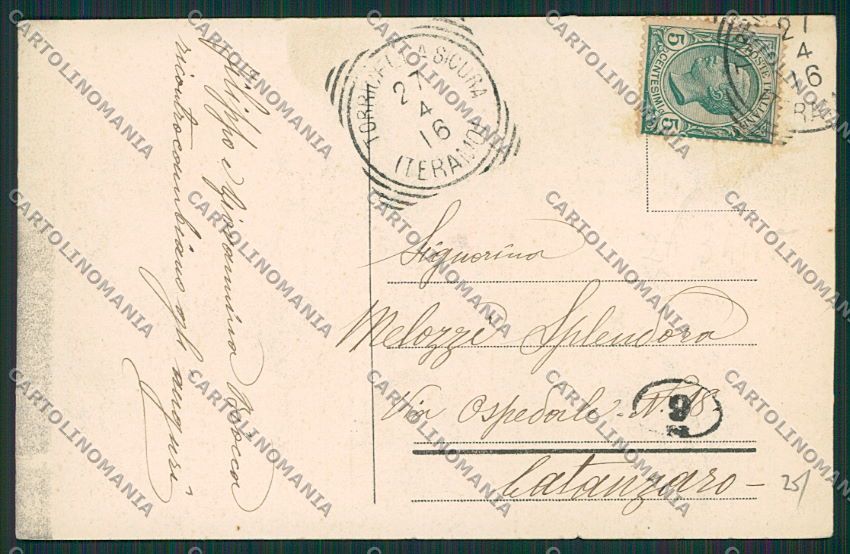 Filippo e Giovannina Rocca
ricontrocambiano gli auguri
TORRICELLA SICURA
27
4
16
(TERAMO)
POSTE ITALIANE
CENTESIMI
5
5
27
4
16
Signorina
Melozzi Splendora
Via Ospedale N. 18
Catanzaro
9
25/
CARTOLINOMANIA